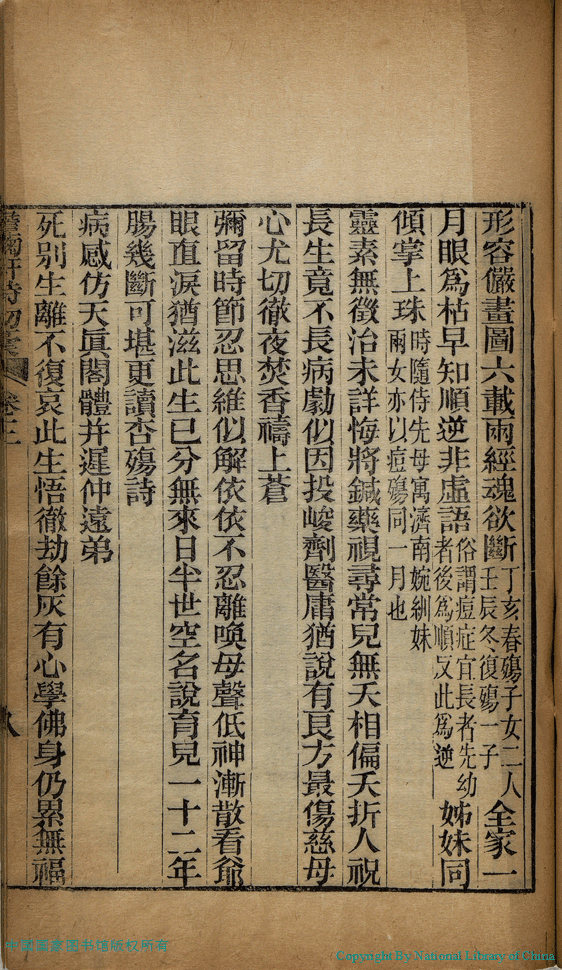 形容儼畫圖六載兩經魂欲斷丁亥春殤子女二人壬辰冬復殤一子全家一
月眼爲枯早知順逆非虛語俗謂痘症宜長者先幼者後爲順反此爲逆姊妹同
傾掌上珠時隨侍先母寓濟南婉紃妹兩女亦以痘殤同一月也
靈素無徵治未詳悔將鍼藥視尋常兒無夭相偏夭折人祝
長生竟不長病劇似因投峻劑醫庸猶說有良方最傷慈母
心尤切徹夜焚香禱上蒼
彌留時節忍思維似解依依不忍離喚母聲低神漸散看爺
眼直淚猶滋此生已分無來日半世空名說育兒一十二年
腸幾斷可堪更讀杏殤詩
病感仿天眞閣體幷遲仲遠弟
死別生離不復哀此生悟徹劫餘灰有心學佛身仍累無福
卷三
八
中國國家图书馆版权所有
Copyright By National Library of China